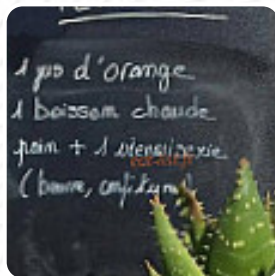 1 jus d'orange
1 boisson chaude
pain + 1 viennoiserie
(beurre, confiture)